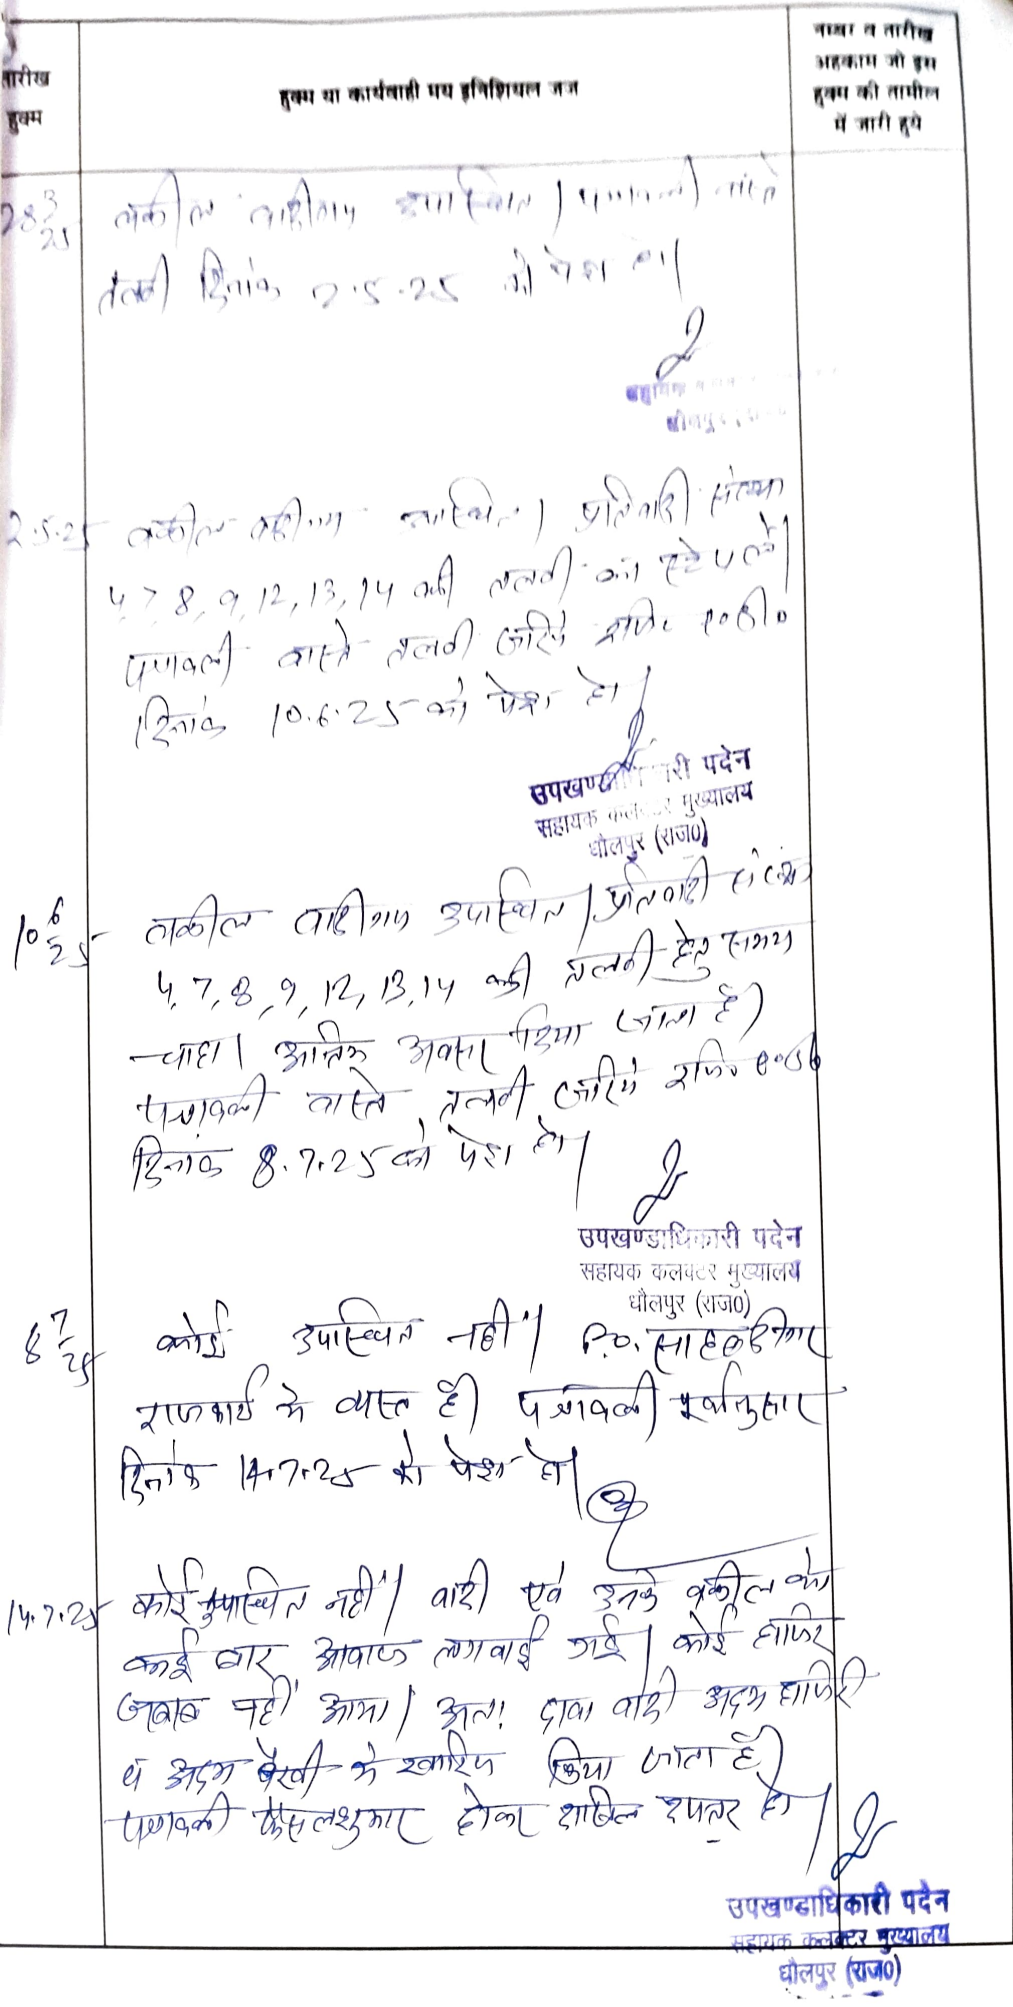 तारीख
हुक्म
हुक्म या कार्यवाही मय इनिशियल जज
नम्बर व तारीख
अहकाम जो इस
हुक्म की तामील
में जारी हुये
28 3/25 वकील वादीगण उपस्थित। पत्रावली वास्ते
तलवी दिनांक 2.5.25 को पेश हो।
2.5.25 वकील वादीगण उपस्थित। प्रतिवादी संख्या
4, 7, 8, 9, 12, 13, 14 की तलवी
पत्रावली वास्ते तलवी जरिये रजि० ए०डी०
दिनांक 10.6.25 को पेश हो।
उपखण्डाधिकारी पदेन
सहायक कलक्टर मुख्यालय
धौलपुर (राज0)
10 6/25 वकील वादीगण उपस्थित। प्रतिवादी संख्या
4, 7, 8, 9, 12, 13, 14 की तलवी हेतु समय
चाहा। अन्तिम अवसर दिया जाता है।
पत्रावली वास्ते तलवी जरिये रजि० ए०डी०
दिनांक 8.7.25 को पेश हो।
उपखण्डाधिकारी पदेन
सहायक कलक्टर मुख्यालय
धौलपुर (राज0)
8 7/25 कोई उपस्थित नहीं। P.O. साहब
राजकार्य मे व्यस्त है। पत्रावली पूर्वानुसार
दिनांक 14.7.25 को पेश हो।
14.7.25 कोई उपस्थित नहीं। वादी एवं उनके वकील को
कई बार आवाज लगवाई गई। कोई हाजिर
जबाब नहीं आया। अतः दावा वादी अदम हाजिरी
व अदम पैरवी मे खारिज किया जाता है।
पत्रावली फैसलशुमार होकर दाखिल दफ्तर हो।
उपखण्डाधिकारी पदेन
सहायक कलक्टर मुख्यालय
धौलपुर (राज0)